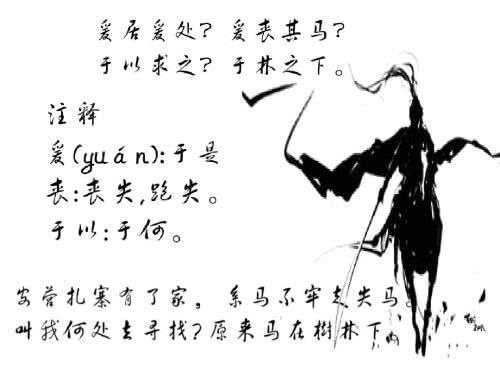 爰居爰处？爰丧其马？
于以求之？于林之下。
注释
爰(yuán):于是
丧:丧失,跑失。
于以:于何。
安营扎寨有了家，系马不牢走失马。
叫我何处去寻找?原来马在樹林下。